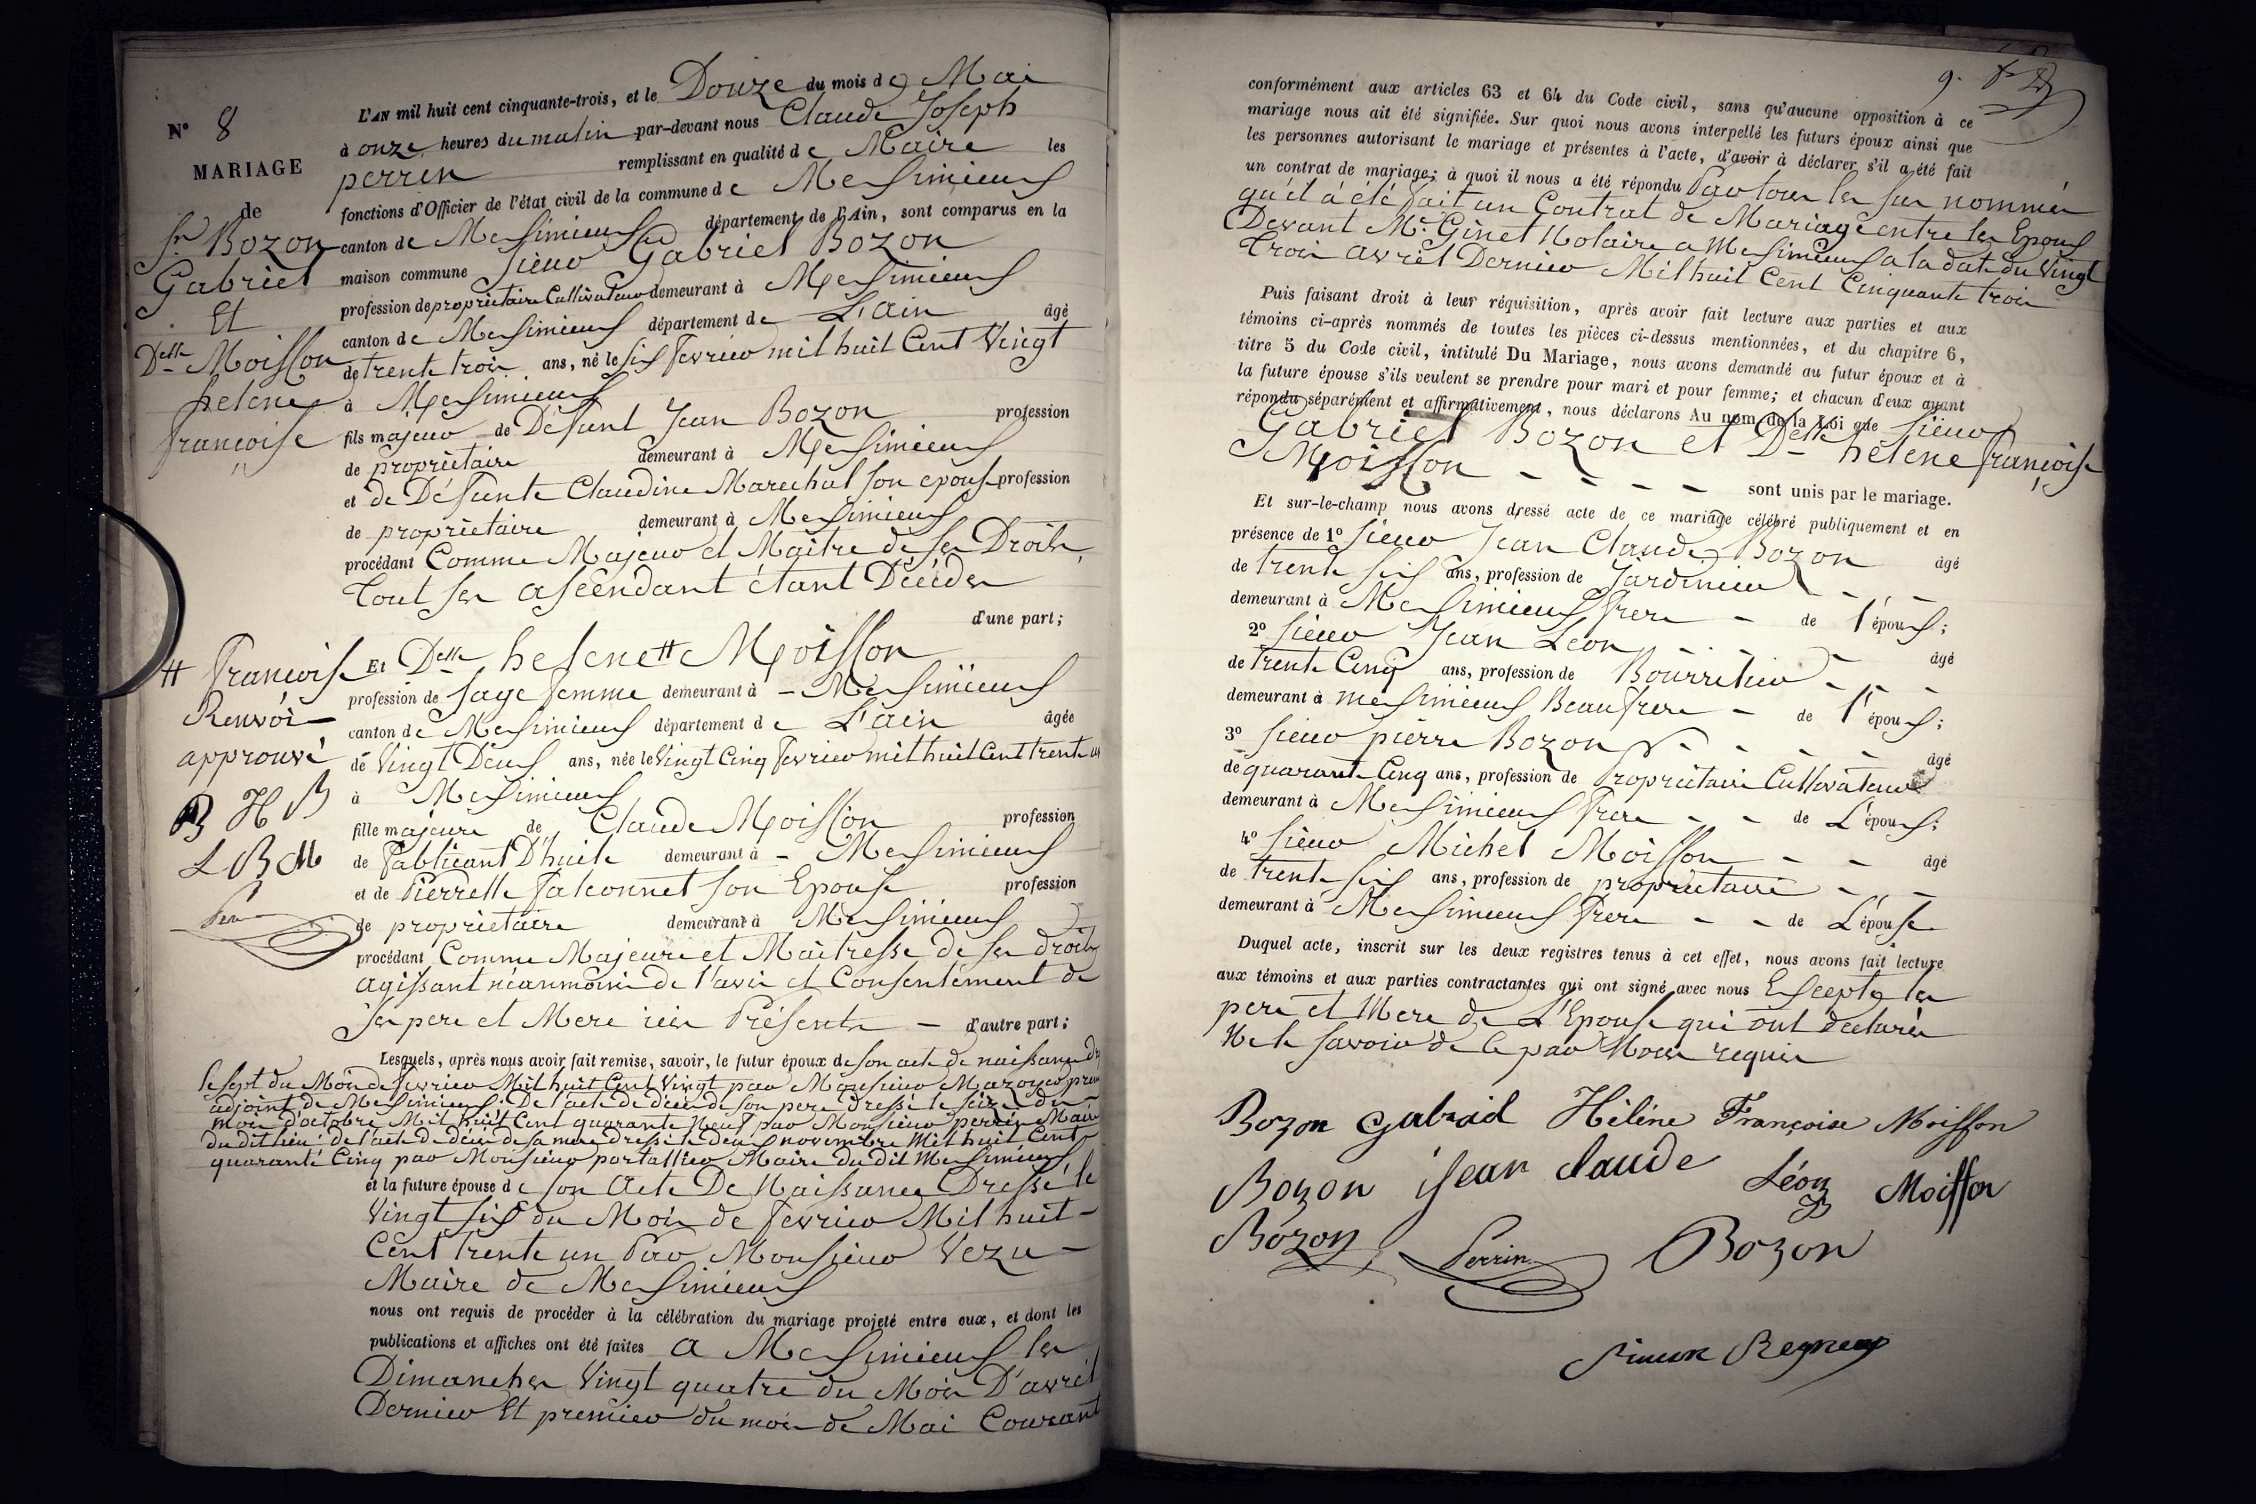 N° 8
MARIAGE
de
Sr Bozon
Gabriel
Et
Delle Moisson
helene
françoise
L'AN mil huit cent cinquante-trois, et le Douze du mois de Mai
à onze heures du matin par-devant nous Claude Joseph
perrin remplissant en qualité de Maire les
fonctions d'Officier de l'état civil de la commune de Messimieux
canton de Messimieux département de l'Ain, sont comparus en la
maison commune Sieur Gabriel Bozon
profession de propriétaire Cultivateur demeurant à Messimieux
canton de Messimieux département de L'ain âgé
de trente trois ans, né le six fevrier mil huit Cent Vingt
à Messimieux
fils majeur de Défunt Jean Bozon profession
de propriétaire demeurant à Messimieux
et de Défunte Claudine Marechal son epouse profession
de propriétaire demeurant à Messimieux
procédant Comme Majeur et Maître de ses Droits,
Tout ses ascendant étant Décédes
d'une part;
Et Delle helene # Moisson
profession de sage femme demeurant à - Messimieux
canton de Messimieux département de L'ain âgée
de Vingt Deux ans, née le Vingt Cinq fevrier mil huit Cent trente un
à Messimieux
fille majeure de Claude Moisson profession
de fabricant D'huile demeurant à - Messimieux
et de Pierrette falconnet son Epouse profession
de propriétaire demeurant à Messimieux
procédant Comme Majeure et Maitresse de ses droits
agissant néanmoins de l'avis et Consentement de
Ses pere et Mere icis Présents - d'autre part;
# françoise
Renvoi
approuvé
B H B
L B M
Lesquels, après nous avoir fait remise, savoir, le futur époux de son acte de naissance
le sept du Mois de fevrier Mil huit Cent Vingt par Monsieur Mazoyer
adjoint de Messimieux. De l'acte de décès de son pere dressé le seize du
mois d'octobre Mil huit Cent quarante neuf par Monsieur perrin Maire
du dit lieu: de l'acte de décès de sa mere dressé le deux novembre Mil huit Cent
quarante Cinq par Monsieur portallier Maire du dit Messimieux
et la future épouse de son Acte De Naissance Dressé le
Vingt six du Mois de fevrier Mil huit-
Cent trente un Par Monsieur Vezu -
Maire de Messimieux
nous ont requis de procéder à la célébration du mariage projeté entre eux, et dont les
publications et affiches ont été faites a Messimieux les
Dimanches Vingt quatre du Mois D'avril
Dernier Et premier du mois de Mai Courant
9.
conformément aux articles 63 et 64 du Code civil, sans qu'aucune opposition à ce
mariage nous ait été signifiée. Sur quoi nous avons interpellé les futurs époux ainsi que
les personnes autorisant le mariage et présentes à l'acte, d'avoir à déclarer s'il a été fait
un contrat de mariage; à quoi il nous a été répondu Par tous les sus nommés
qu'il á été fait un Contrat de Mariage entre les Epoux
Devant Mr. Ginet Notaire a Messimieux a la date du Vingt
Trois avril Dernier Mil huit Cent Cinquante trois
Puis faisant droit à leur réquisition, après avoir fait lecture aux parties et aux
témoins ci-après nommés de toutes les pièces ci-dessus mentionnées, et du chapitre 6,
titre 5 du Code civil, intitulé Du Mariage, nous avons demandé au futur époux et à
la future épouse s'ils veulent se prendre pour mari et pour femme; et chacun d'eux ayant
répondu séparément et affirmativement, nous déclarons Au nom de la Loi que Sieur
Gabriel Bozon et Delle helene françoise
Moisson - - - - sont unis par le mariage.
Et sur-le-champ nous avons dressé acte de ce mariage célébré publiquement et en
présence de 1° Sieur Jean Claude Bozon âgé
de trente six ans, profession de Jardinier - -
demeurant à Messimieux frere - de l'époux;
2° Sieur Jean Leon - - - âgé
de trente Cinq ans, profession de Bourrelier - - -
demeurant à messimieux Beau frere - de l'époux;
3° Sieur pierre Bozon - - - - âgé
de quarante Cinq ans, profession de Propriétaire Cultivateur
demeurant à Messimieux frere - - de L'époux;
4° Sieur Michel Moisson - - âgé
de trente six ans, profession de propriétaire - -
demeurant à Messimieux frere - - de L'épouse
Duquel acte, inscrit sur les deux registres tenus à cet effet, nous avons fait lecture
aux témoins et aux parties contractantes qui ont signé avec nous Excepte les
pere et Mere de L'Epouse qui ont déclarés
Ne le savoir de Ce par Nous requis
Bozon Gabriel Hélène Françoise Moisson
Bozon jean claude Léon Moisson
Bozon Perrin Bozon